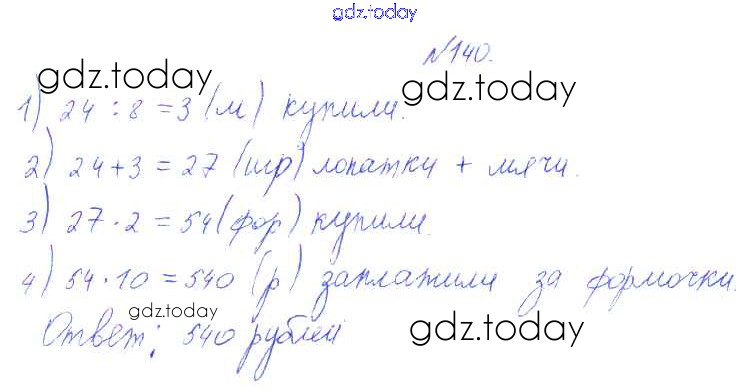 gdz.today
№140.
gdz.today gdz.today
1) 24 : 8 = 3 (м) купили.
2) 24 + 3 = 27 (игр) лопатки + мячи.
3) 27 · 2 = 54 (фор) купили.
4) 54 · 10 = 540 (р) заплатили за формочки.
gdz.today gdz.today
Ответ: 540 рублей